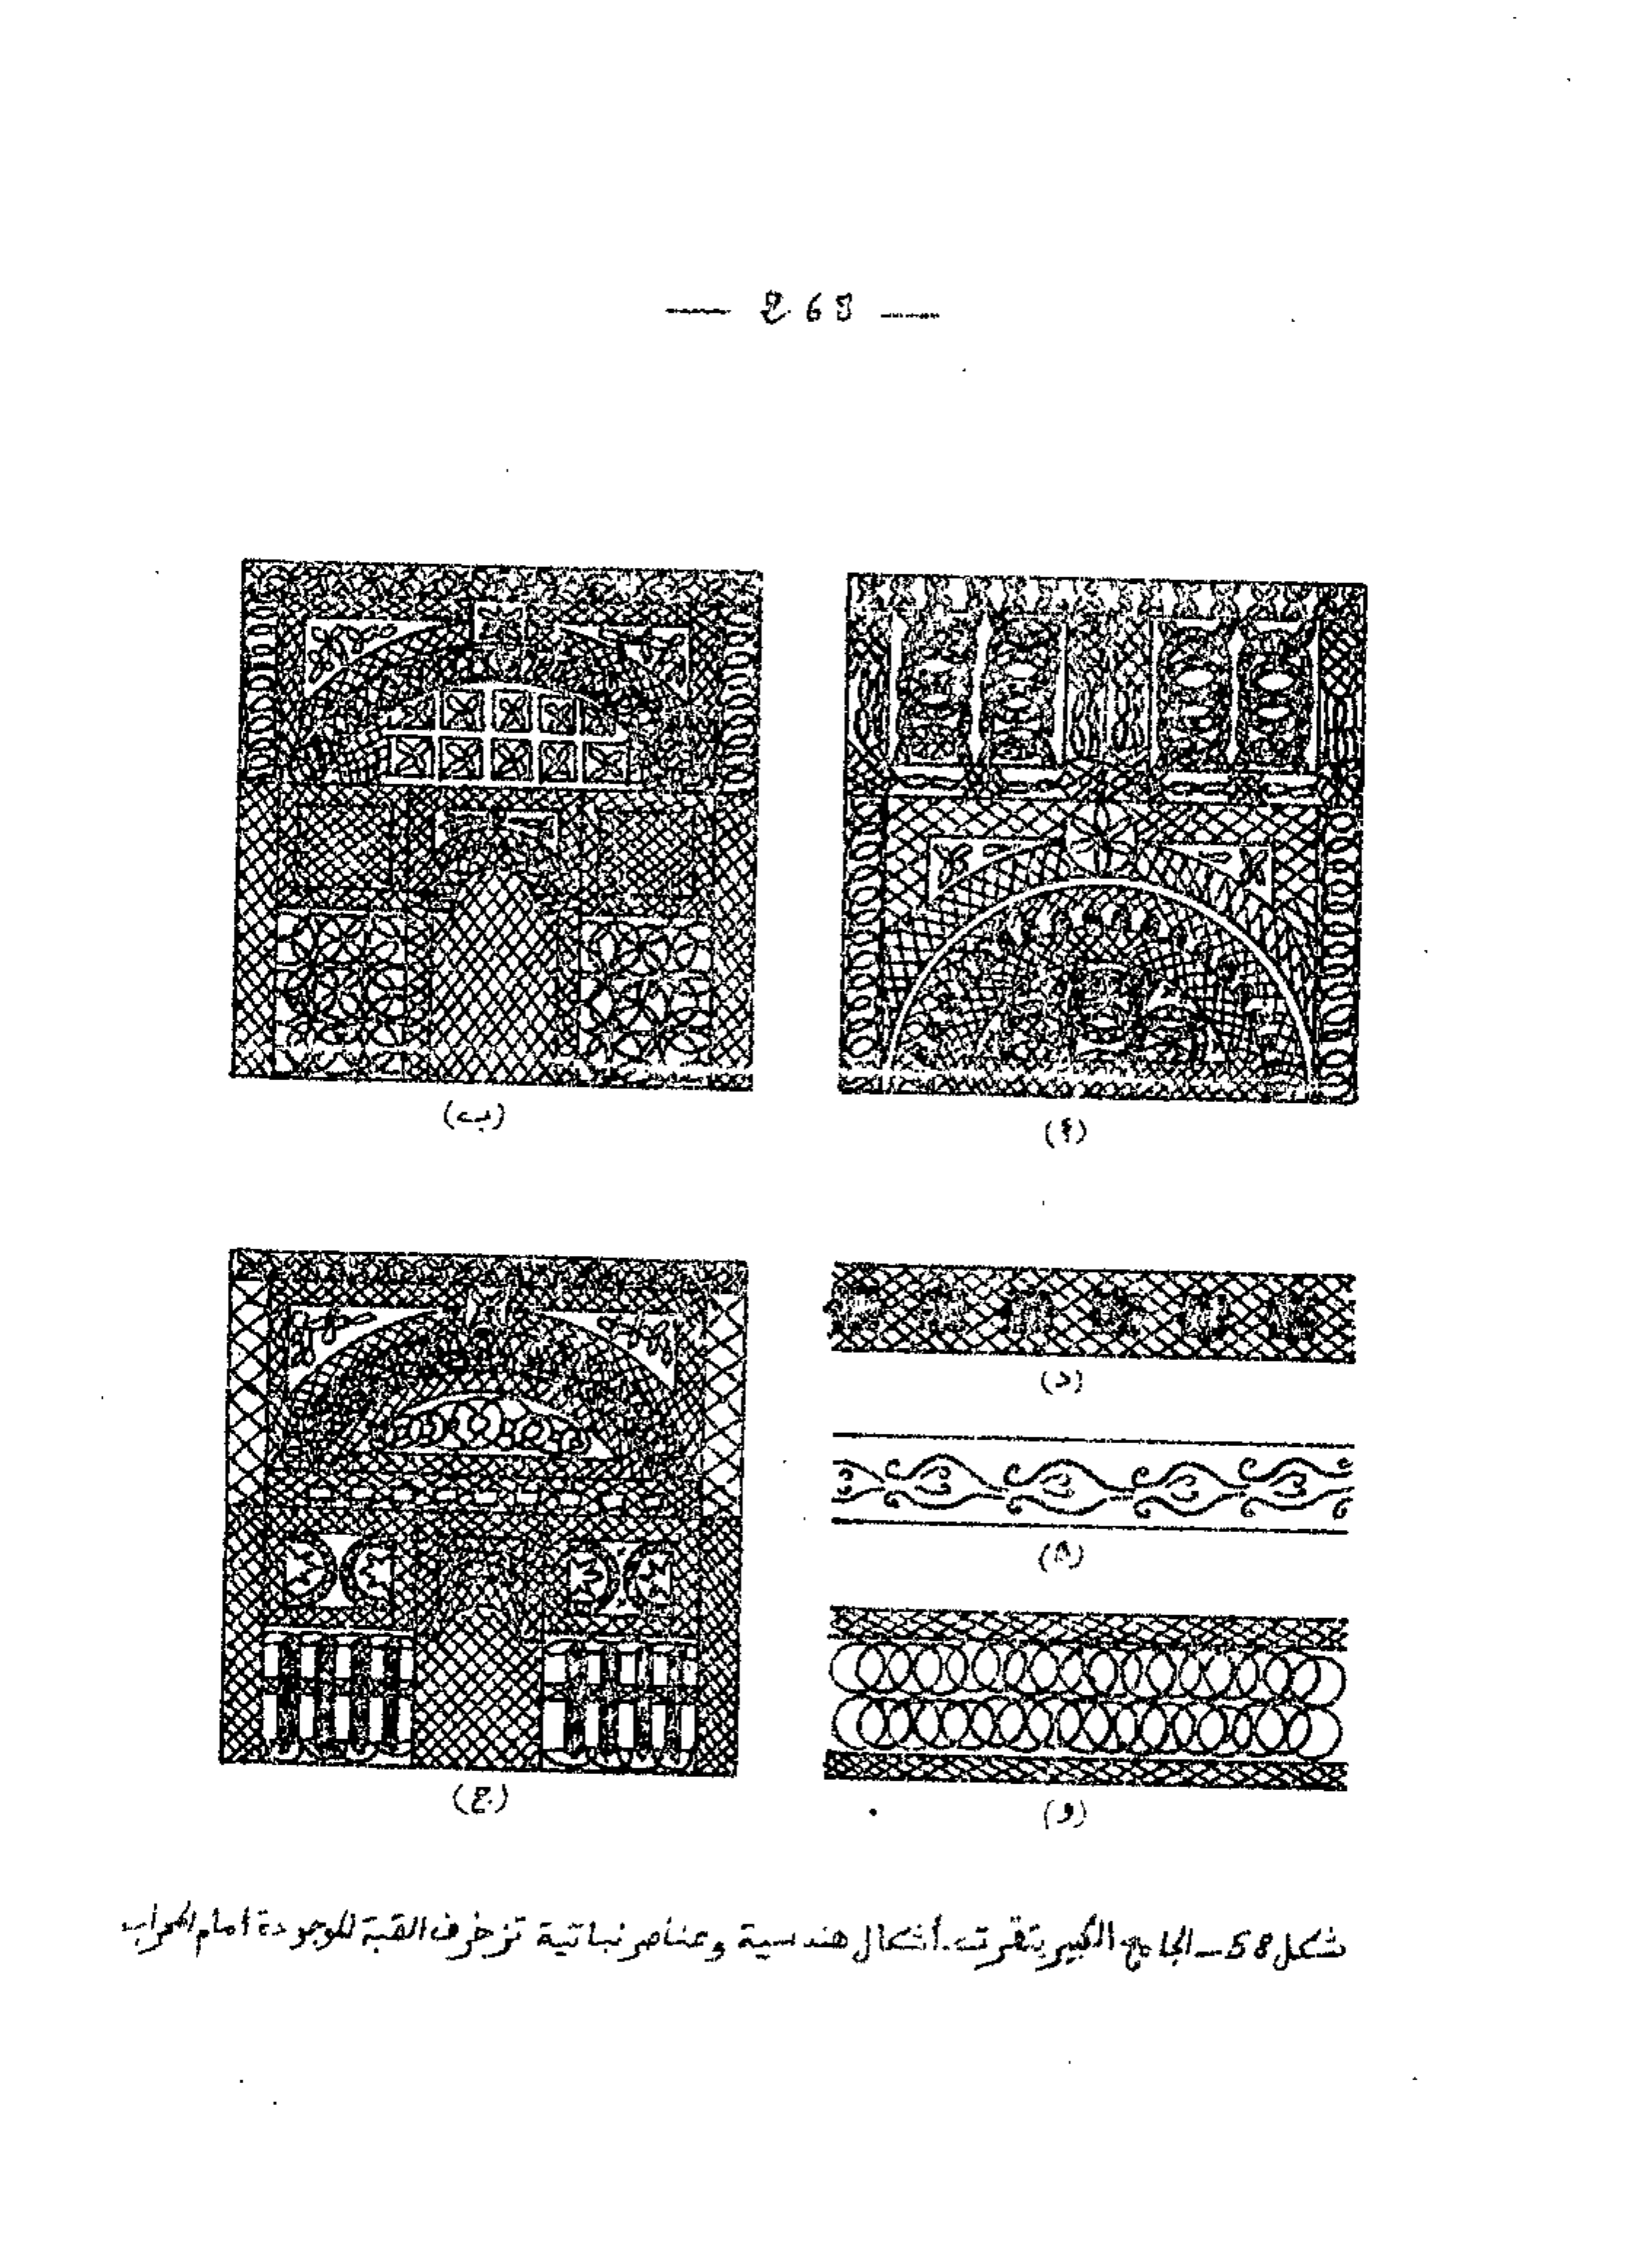 — 268 —
(أ)
(ب)
(د)
(ه)
(ج)
(و)
شكل 58 ـ الجامع الكبير بتقرت. أشكال هندسية وعناصر نباتية تزخرف القبة الموجودة أمام المحراب